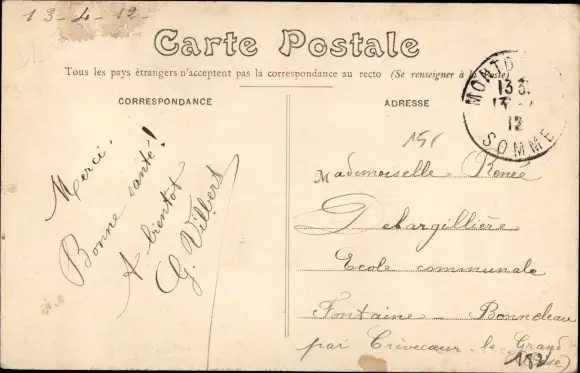 13-4-12-
Carte Postale
Tous les pays étrangers n'acceptent pas la correspondance au recto (Se renseigner à la Poste)
CORRESPONDANCE
ADRESSE
Merci.
Bonne santé!
A bientot
G. Vilbert
MONTD
13
12
SOMME
Mademoiselle Renée
Delargillière
Ecole communale
Fontaine - Bonneleau
par Crèvecœur-le-Grand
(Oise)
182